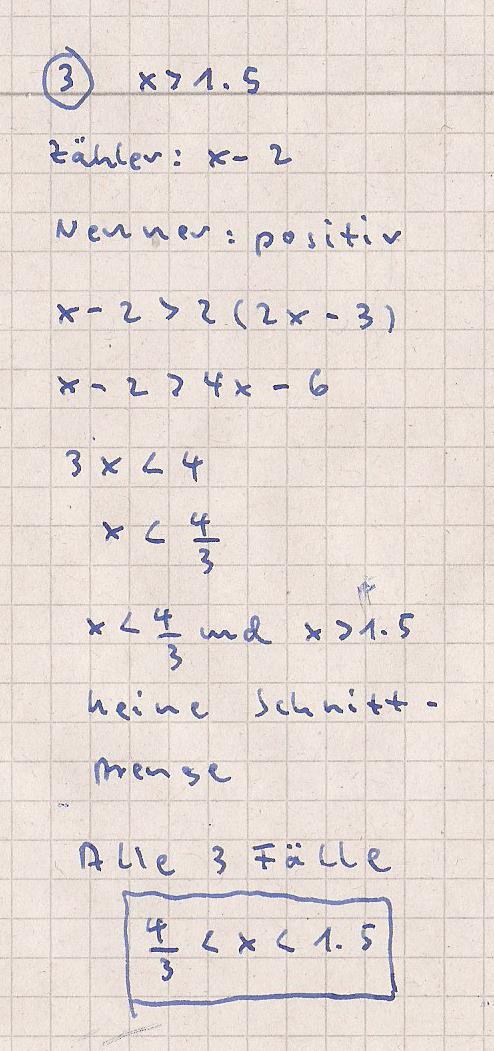 3 x > 1.5
Zähler: x - 2
Nenner: positiv
x - 2 > 2 (2x - 3)
x - 2 > 4x - 6
3x < 4
x < 4/3
x < 4/3 und x > 1.5
keine Schnitt-
menge
Alle 3 Fälle
4/3 < x < 1.5